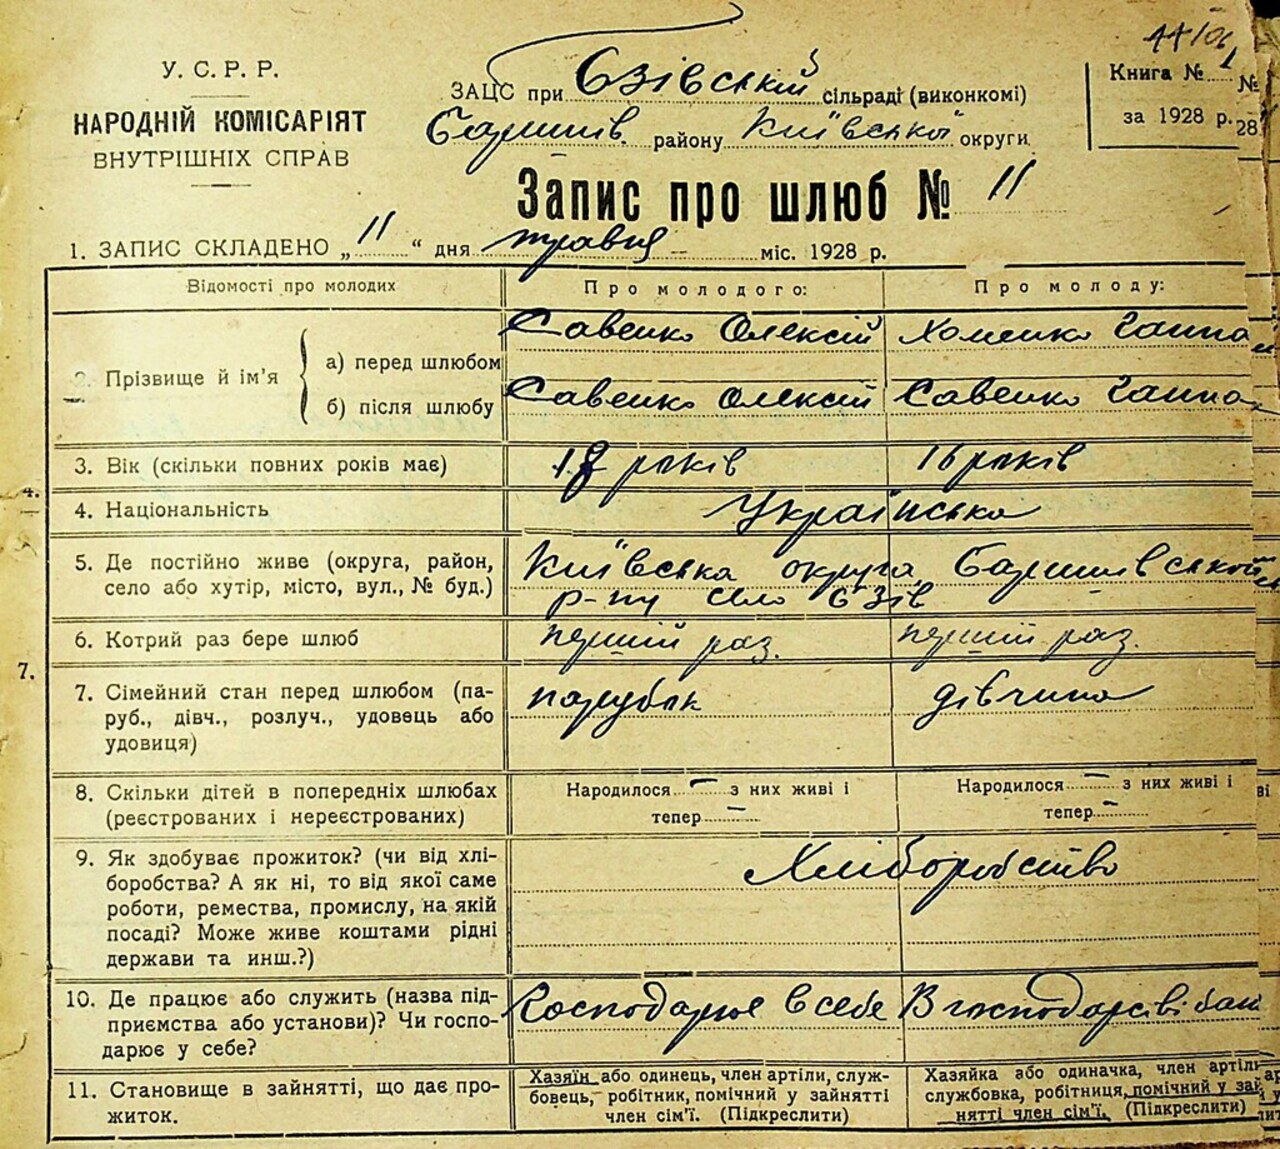 44/06
У. С. Р. Р.
НАРОДНІЙ КОМІСАРІЯТ
ВНУТРІШНІХ СПРАВ
ЗАЦС при Єзівській сільраді (виконкомі)
Баришів. району Київської округи
Книга № 1
за 1928 р.
№
28
Запис про шлюб № 11
1. ЗАПИС СКЛАДЕНО „ 11 “ дня травня міс. 1928 р.
Відомості про молодих Про молодого: Про молоду:
2. Прізвище й ім’я
а) перед шлюбом Савенко Олексій Хоменко Ганна
б) після шлюбу Савенко Олексій Савенко Ганна
3. Вік (скільки повних років має) 18 років 16 років
4.
4. Національність Українська
5. Де постійно живе (округа, район, Київська округа Баришівської
село або хутір, місто, вул., № буд.) р-ну село Єзів
6. Котрий раз бере шлюб перший раз. перший раз.
7.
7. Сімейний стан перед шлюбом (па- парубок дівчина
руб., дівч., розлуч., удовець або
удовиця)
8. Скільки дітей в попередніх шлюбах Народилося — з них живі і Народилося — з них живі і
(реєстрованих і нереєстрованих) тепер — тепер —
9. Як здобуває прожиток? (чи від хлі- Хліборобство
боробства? А як ні, то від якої саме
роботи, ремества, промислу, на якій
посаді? Може живе коштами рідні
держави та инш.?)
10. Де працює або служить (назва під- Господарює в себе В господарсві бать
приємства або установи)? Чи госпо-
дарює у себе?
11. Становище в зайнятті, що дає про- Хазяїн або одинець, член артіли, служ- Хазяйка або одиначка, член артіл
житок. бовець, робітник, помічний у зайнятті службовка, робітниця, помічний у зай
член сім’ї. (Підкреслити) нятті член сім’ї. (Підкреслити)